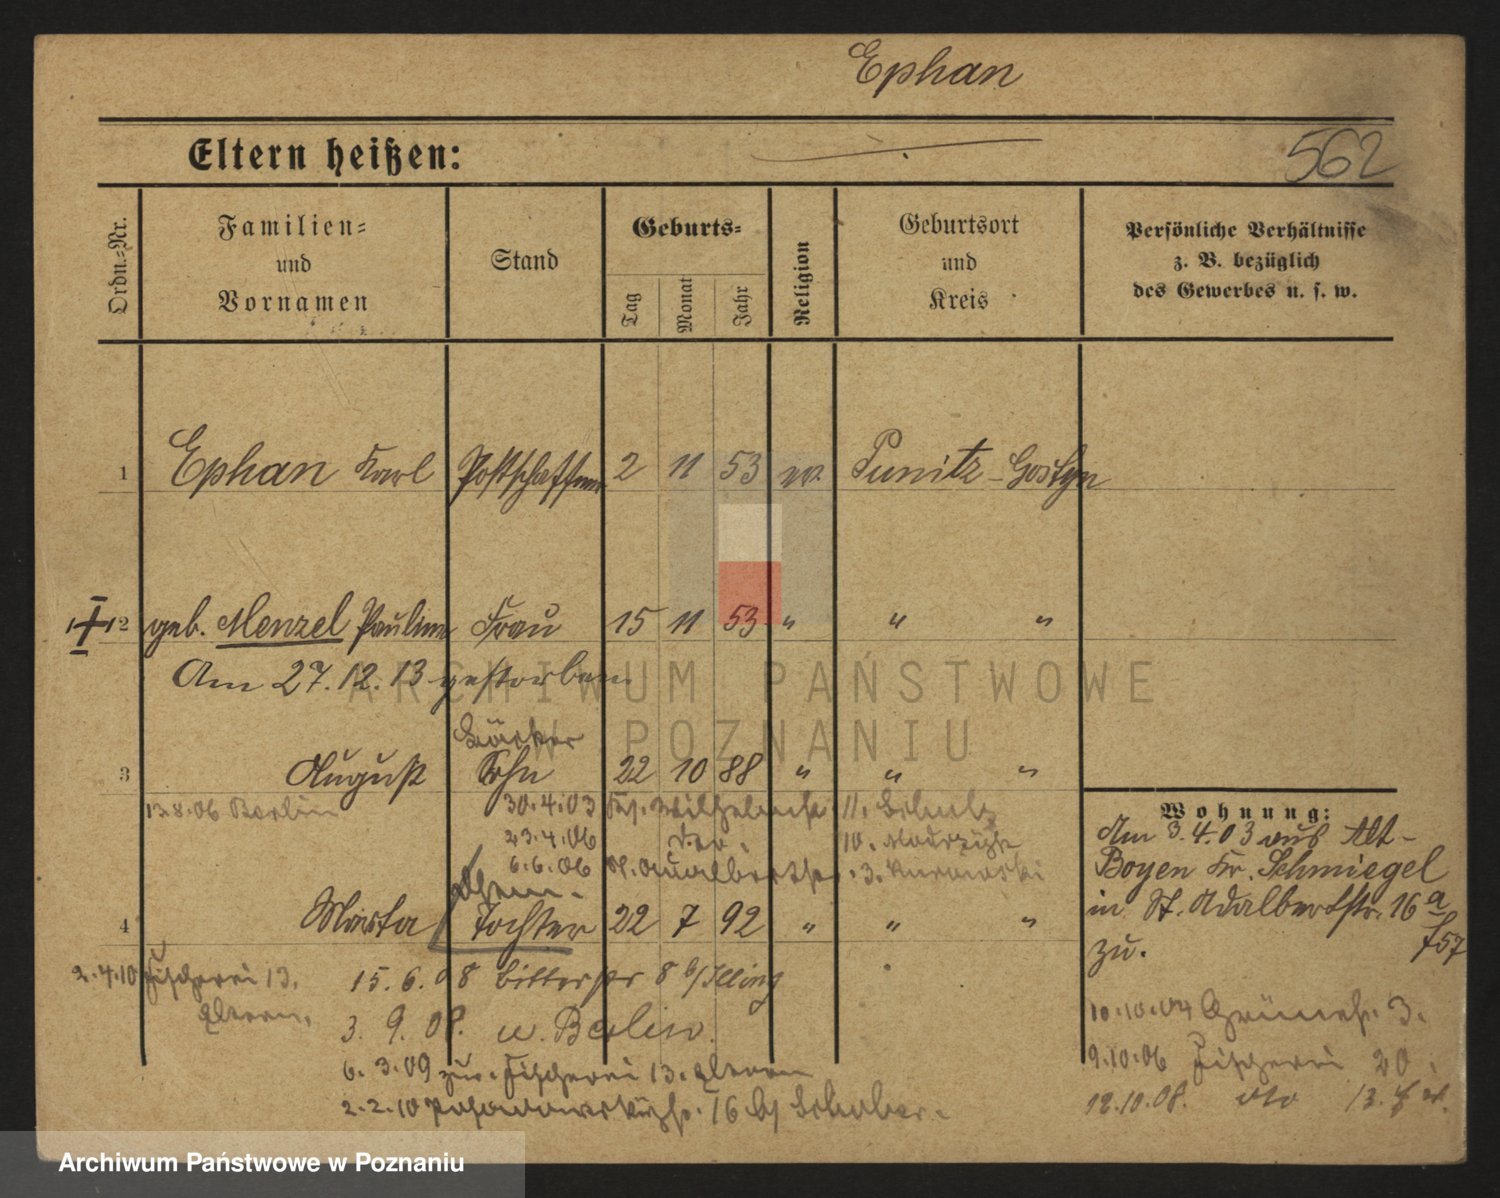 Ephan
Eltern heißen:
562
Ordn.-Nr.
Familien-
und
Vornamen
Stand
Geburts-
Tag
Monat
Jahr
Religion
Geburtsort
und
Kreis
Persönliche Verhältnisse
z. B. bezüglich
des Gewerbes u. s. w.
1 Ephan Karl Postschaffner 2 11 53 ev. Punitz - Gostyn
2 geb. Menzel Pauline Frau 15 11 53 " " "
Am 27.12.13 gestorben
3 August Sohn 22 10 88 " " "
13.8.06 Berlin
30.4.03
23.4.06
6.6.06
4 Marta Tochter 22 7 92 " " "
2.4.10 Fischerei 13.
Eltern.
15.6.08 Bitterstr 8 b/Illing
3. 9. 08. n. Berlin.
6. 3. 09 zur. Fischerei 13. Eltern
2.2.10 16 b/
Wohnung:
Am 3.4.03 aus Alt-
Boyen Kr. Schmiegel
in St. Adalbertstr. 16 a
zu. 757
10.10.04 3.
9.10.06 Fischerei 20.
12.10.08. dto 13.
ARCHIWUM PAŃSTWOWE
W POZNANIU
Archiwum Państwowe w Poznaniu